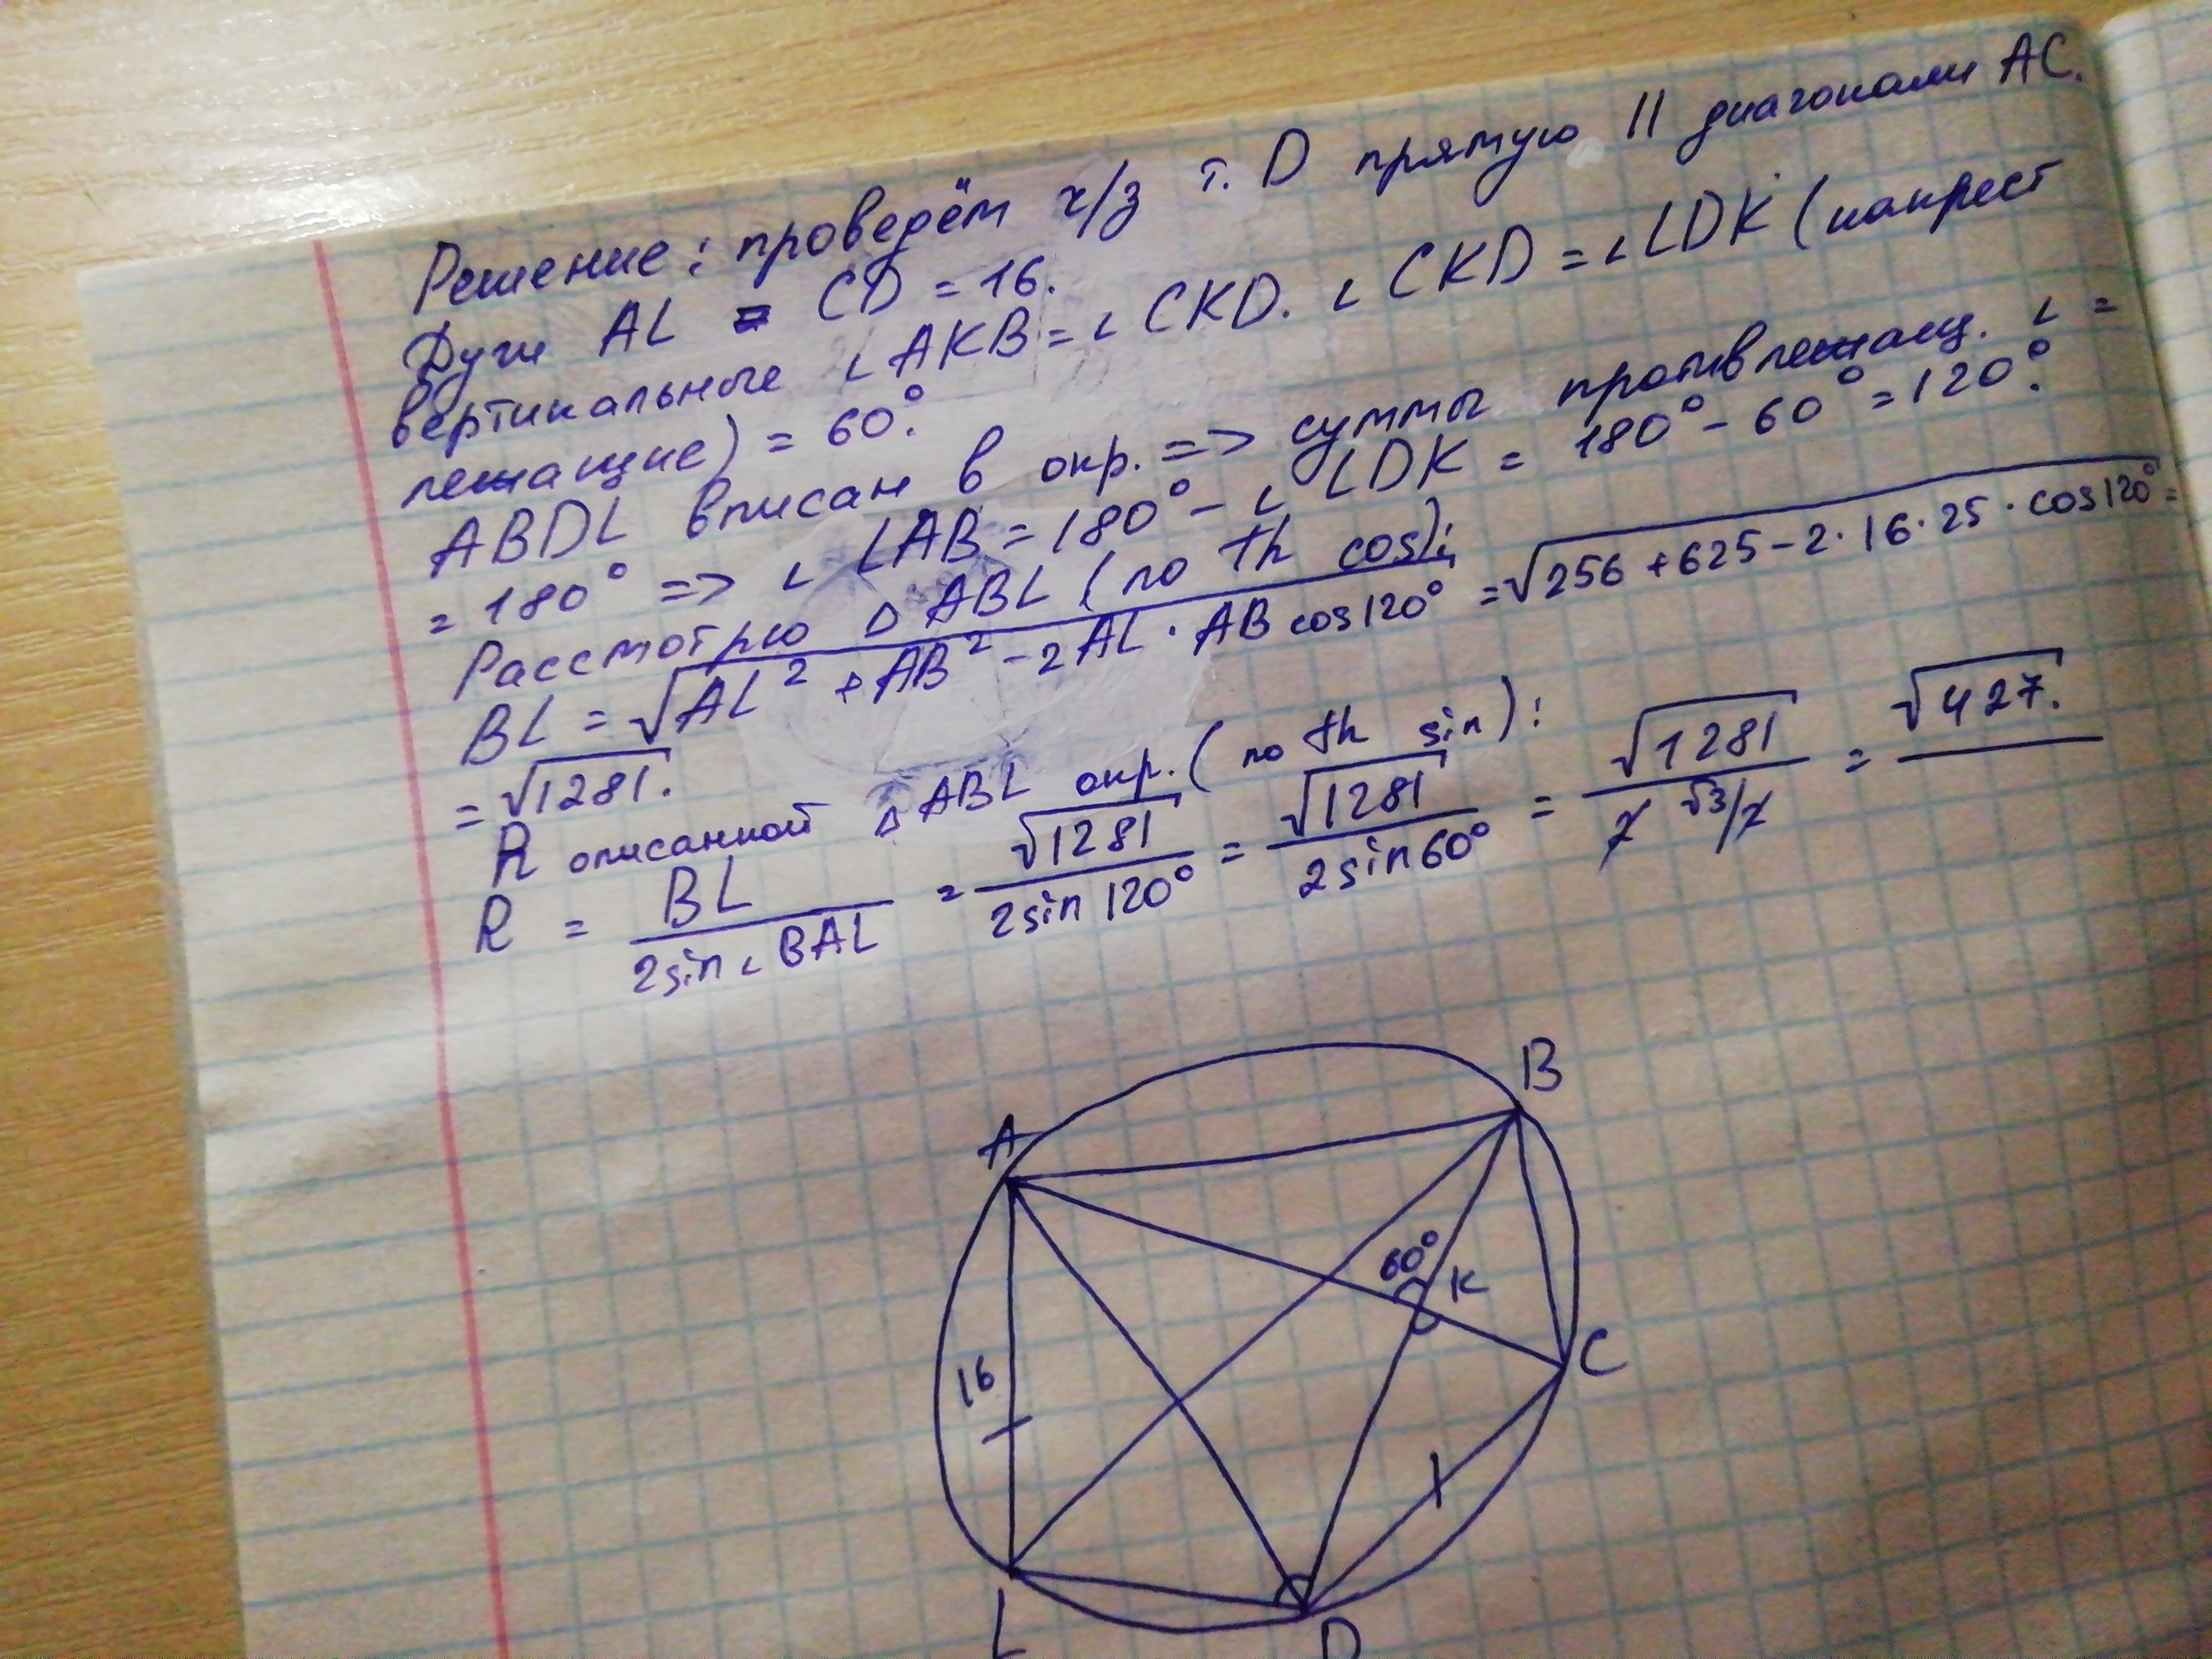 Решение: проведём ч/з т. D прямую || диагонали AC.
Дуги AL = CD = 16.
вертикальные ∠AKB = ∠CKD. ∠CKD = ∠LDK (накрест
лежащие) = 60°.
ABDL вписан в окр. => суммы противлежащ. ∠ =
= 180° => ∠LAB = 180° - ∠LDK = 180° - 60° = 120°.
Рассмотрю △ABL (по th cos):
BL = √(AL² + AB² - 2AL · AB cos120°) = √(256 + 625 - 2 · 16 · 25 · cos120°) =
= √1281.
R описанной △ABL окр. (по th sin):
R = BL / 2sin∠BAL = √1281 / 2sin120° = √1281 / 2sin60° = √1281 / 2 √3/2 = √427.
B
A
60°
K
C
16
L
D